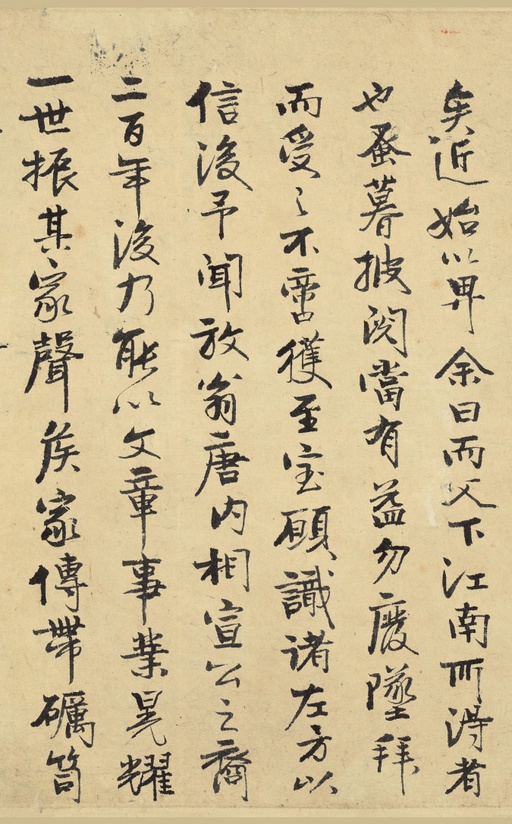 矣近始以畀余曰而父下江南所得者
也蚤暮披閱當有益勿廢墜拜
而受之不啻獲至宝顧識諸左方以
信後予聞放翁唐内相宣公之裔
二百年後乃能以文章事業晃耀
一世振其家聲矦家傳帶礪笥